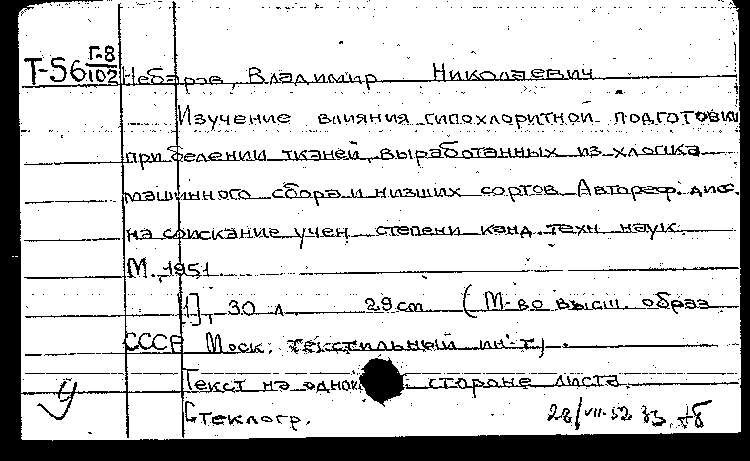 Т-56 Г-8/102 Небаров, Владимир Николаевич
Изучение влияния гипохлоритной подготовки
при белении тканей, выработанных из хлопка
машинного сбора и низших сортов. Автореф. дис.
на соискание учен. степени канд. техн. наук.
М., 1951
[1], 30 л. 29 cm (М-во высш. образ.
СССР Моск. текстильный ин-т).
Текст на одной стороне листа.
Стеклогр. 28/VII-52